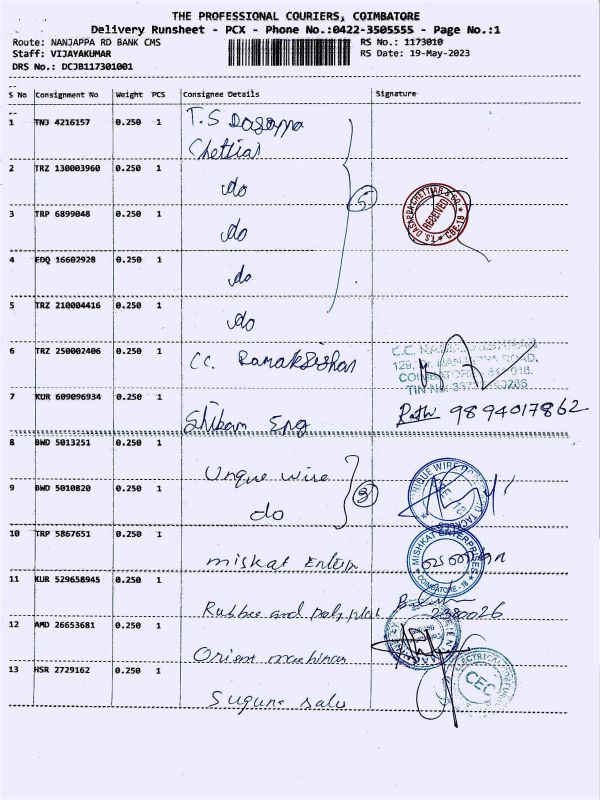 THE PROFESSIONAL COURIERS, COIMBATORE
Delivery Runsheet - PCX - Phone No.:0422-3505555 - Page No.:1
Route: NANJAPPA RD BANK CMS
RS No.: 1173010
Staff: VIJAYAKUMAR
RS Date: 19-May-2023
DRS No.: DCJB117301001
S No Consignment No Weight PCS Consignee Details Signature
1 TNJ 4216157 0.250 1 T.S Dasappa
Chettiar
2 TRZ 130003960 0.250 1 do
5
DASAPPA CHETTIAR & CO
RECEIVED
CBE-18
3 TRP 6899048 0.250 1 do
4 EDQ 16602928 0.250 1 do
5 TRZ 210004416 0.250 1 do
6 TRZ 250002406 0.250 1 CC. Ramakrishan
C.C.
ROAD,
7 KUR 609096934 0.250 1 Shibam Eng
9894017862
8 BWD 5013251 0.250 1 Unque wire
9 BWD 5010820 0.250 1 do
3
UNIQUE WIRE
10 TRP 5867651 0.250 1 miskat Enterp
MISHKAT ENTERPRISES
COIMBATORE - 18
11 KUR 529658945 0.250 1 Rubber and poly plat
2380026
12 AMD 26653681 0.250 1 Orient machinar
13 HSR 2729162 0.250 1 Suguna salu
CEC